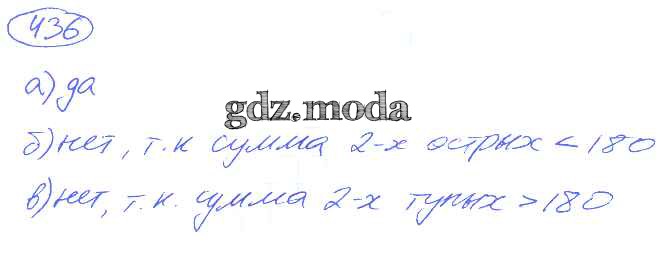 436
а) да
gdz.moda
б) нет, т.к сумма 2-х острых < 180
в) нет, т.к. сумма 2-х тупых > 180